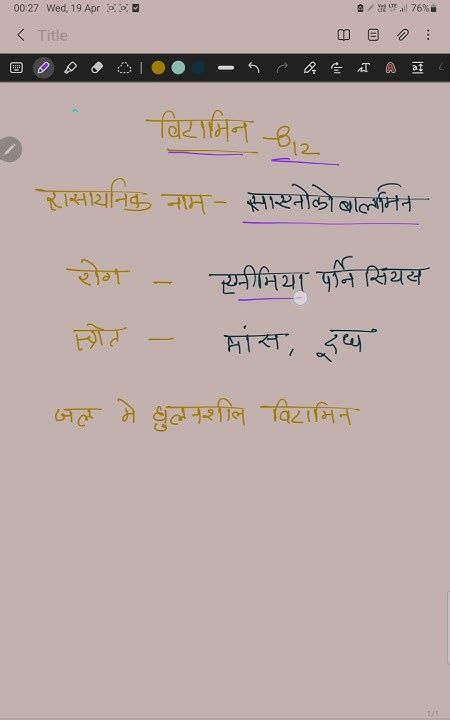 00:27 Wed, 19 Apr 76%
Title
विटामिन - B12
रासायनिक नाम - साएनोकोबालामिन
रोग - एनीमिया पर्निसियस
स्त्रोत - मांस, दूध
जल मे घुलनशील विटामिन
1/1